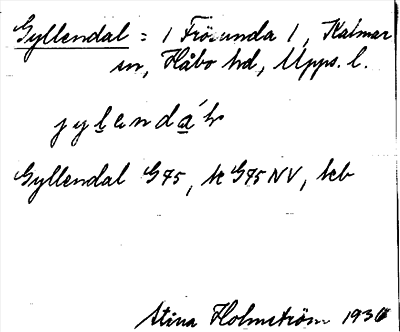 Gyllendal = 1 Frösunda 1, Kalmar
sn, Håbo hd, Upps. l.
jylenda´l
Gyllendal G95, te G95 NV, keb
Stina Holmström 1936